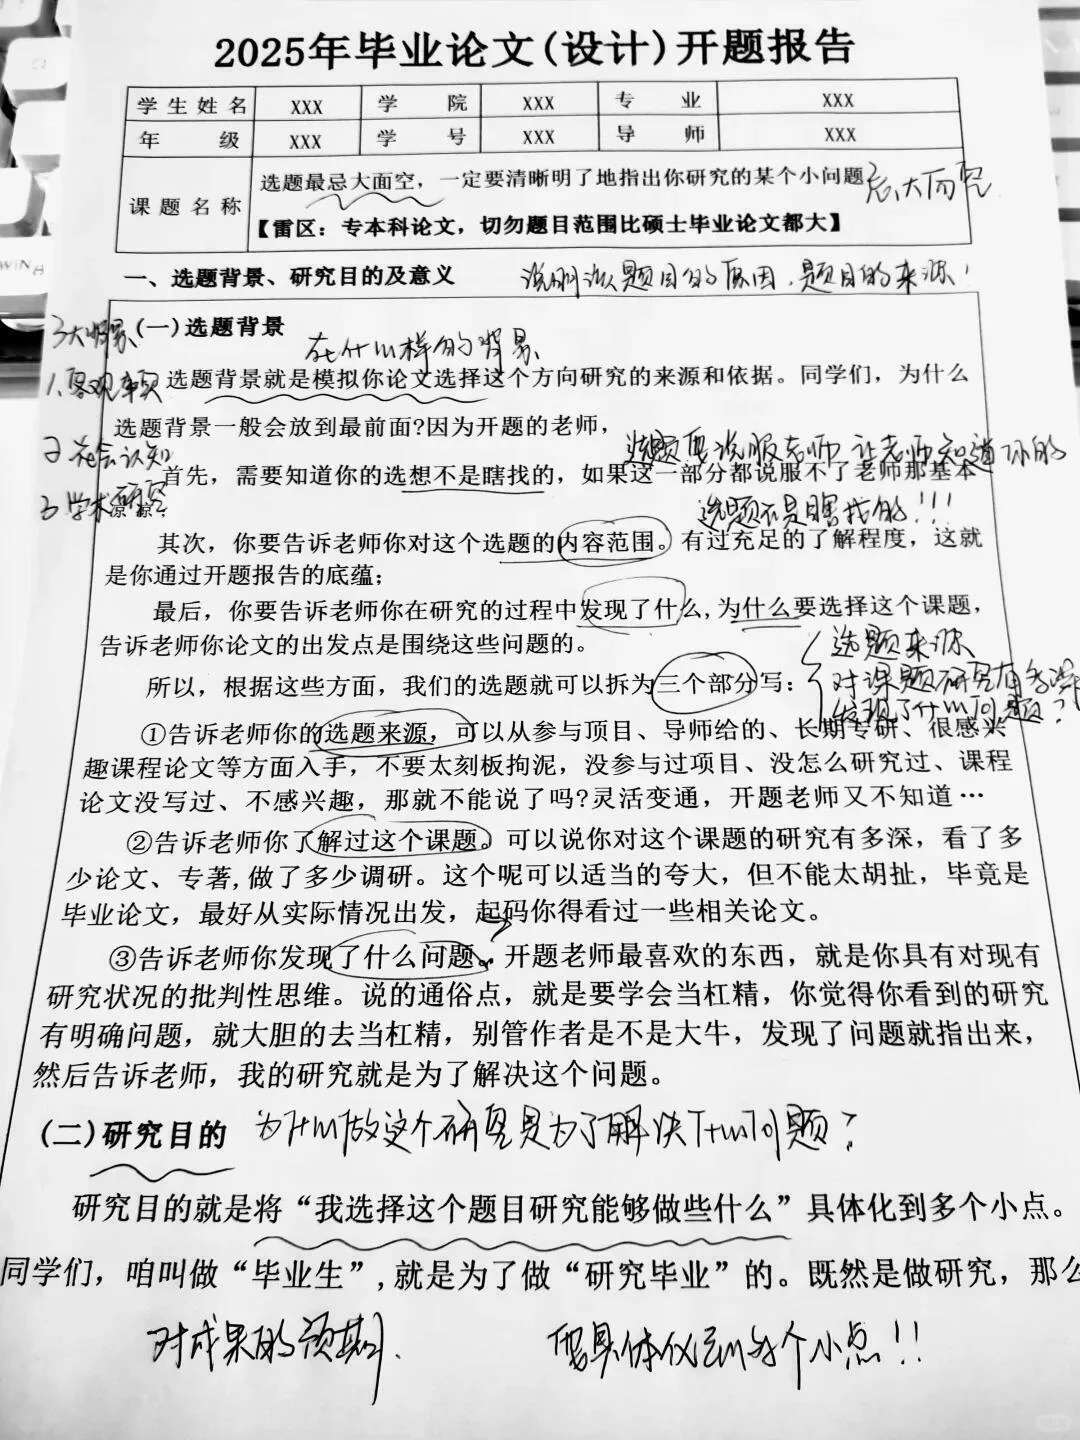 2025年毕业论文(设计)开题报告
学生姓名 XXX 学院 XXX 专业 XXX
年级 XXX 学号 XXX 导师 XXX
课题名称
选题最忌大面空，一定要清晰明了地指出你研究的某个小问题
忌大而空
【雷区：专本科论文，切勿题目范围比硕士毕业论文都大】
一、选题背景、研究目的及意义
说明该题目的原因、题目的来源！
3大背景
1.客观事实
2 社会认知
3.学术研究
(一)选题背景
在什么样的背景
选题背景就是模拟你论文选择这个方向研究的来源和依据。同学们，为什么
选题背景一般会放到最前面?因为开题的老师，
选题要说服老师 让老师知道你的
首先，需要知道你的选想不是瞎找的，如果这一部分都说服不了老师那基本
凉凉；
选题不是瞎找的!!!
其次，你要告诉老师你对这个选题的内容范围。有过充足的了解程度，这就
是你通过开题报告的底蕴；
最后，你要告诉老师你在研究的过程中发现了什么,为什么要选择这个课题，
告诉老师你论文的出发点是围绕这些问题的。
所以，根据这些方面，我们的选题就可以拆为三个部分写：
选题来源
对课题研究有多深
发现了什么问题？
①告诉老师你的选题来源，可以从参与项目、导师给的、长期专研、很感兴
趣课程论文等方面入手，不要太刻板拘泥，没参与过项目、没怎么研究过、课程
论文没写过、不感兴趣，那就不能说了吗?灵活变通，开题老师又不知道…
②告诉老师你了解过这个课题。可以说你对这个课题的研究有多深，看了多
少论文、专著,做了多少调研。这个呢可以适当的夸大，但不能太胡扯，毕竟是
毕业论文，最好从实际情况出发，起码你得看过一些相关论文。
③告诉老师你发现了什么问题。开题老师最喜欢的东西，就是你具有对现有
研究状况的批判性思维。说的通俗点，就是要学会当杠精，你觉得你看到的研究
有明确问题，就大胆的去当杠精，别管作者是不是大牛，发现了问题就指出来，
然后告诉老师，我的研究就是为了解决这个问题。
(二)研究目的
为什么做这个研究是为了解决什么问题？
研究目的就是将“我选择这个题目研究能够做些什么”具体化到多个小点。
同学们，咱叫做“毕业生”,就是为了做“研究毕业”的。既然是做研究，那么
对成果的预期.
要具体化到多个小点!!